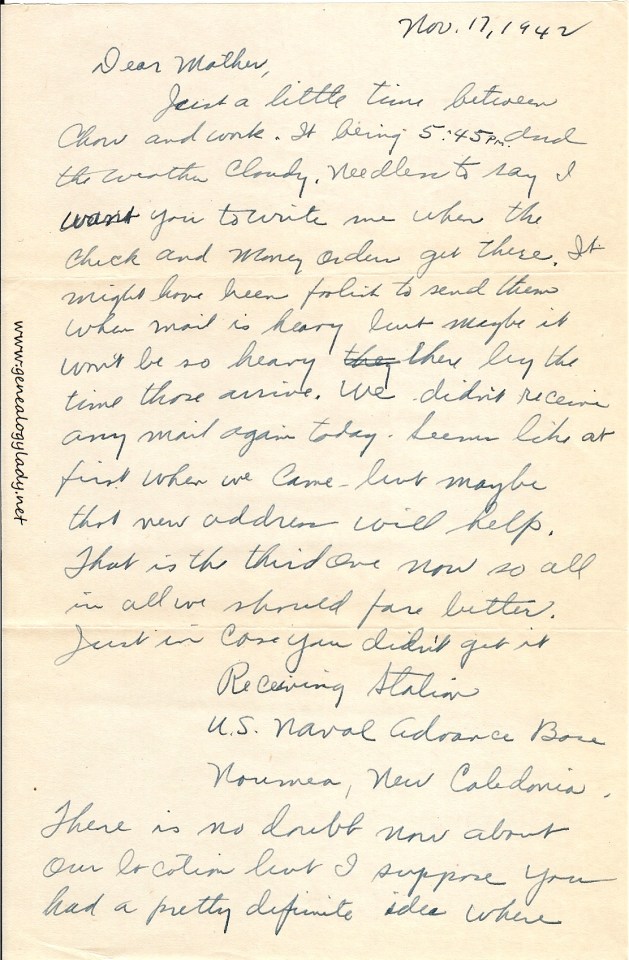 Nov. 17, 1942
Dear Mother,
Just a little time between
Chow and work. It being 5:45 P.M. and
the weather Cloudy. Needless to say I
want you to write me when the
Check and Money Order get there. It
might have been foolish to send them
when mail is heavy but maybe it
won't be so heavy they there by the
time those arrive. We didn't receive
any mail again today. Seems like at
first when we came - but maybe
that new address will help.
That is the third one now so all
in all we should fare better.
Just in case you didn't get it
Receiving Station
U.S. Naval Advance Base
Noumea, New Caledonia.
There is no doubt now about
our location but I suppose you
had a pretty definite idea where
www.genealogylady.net